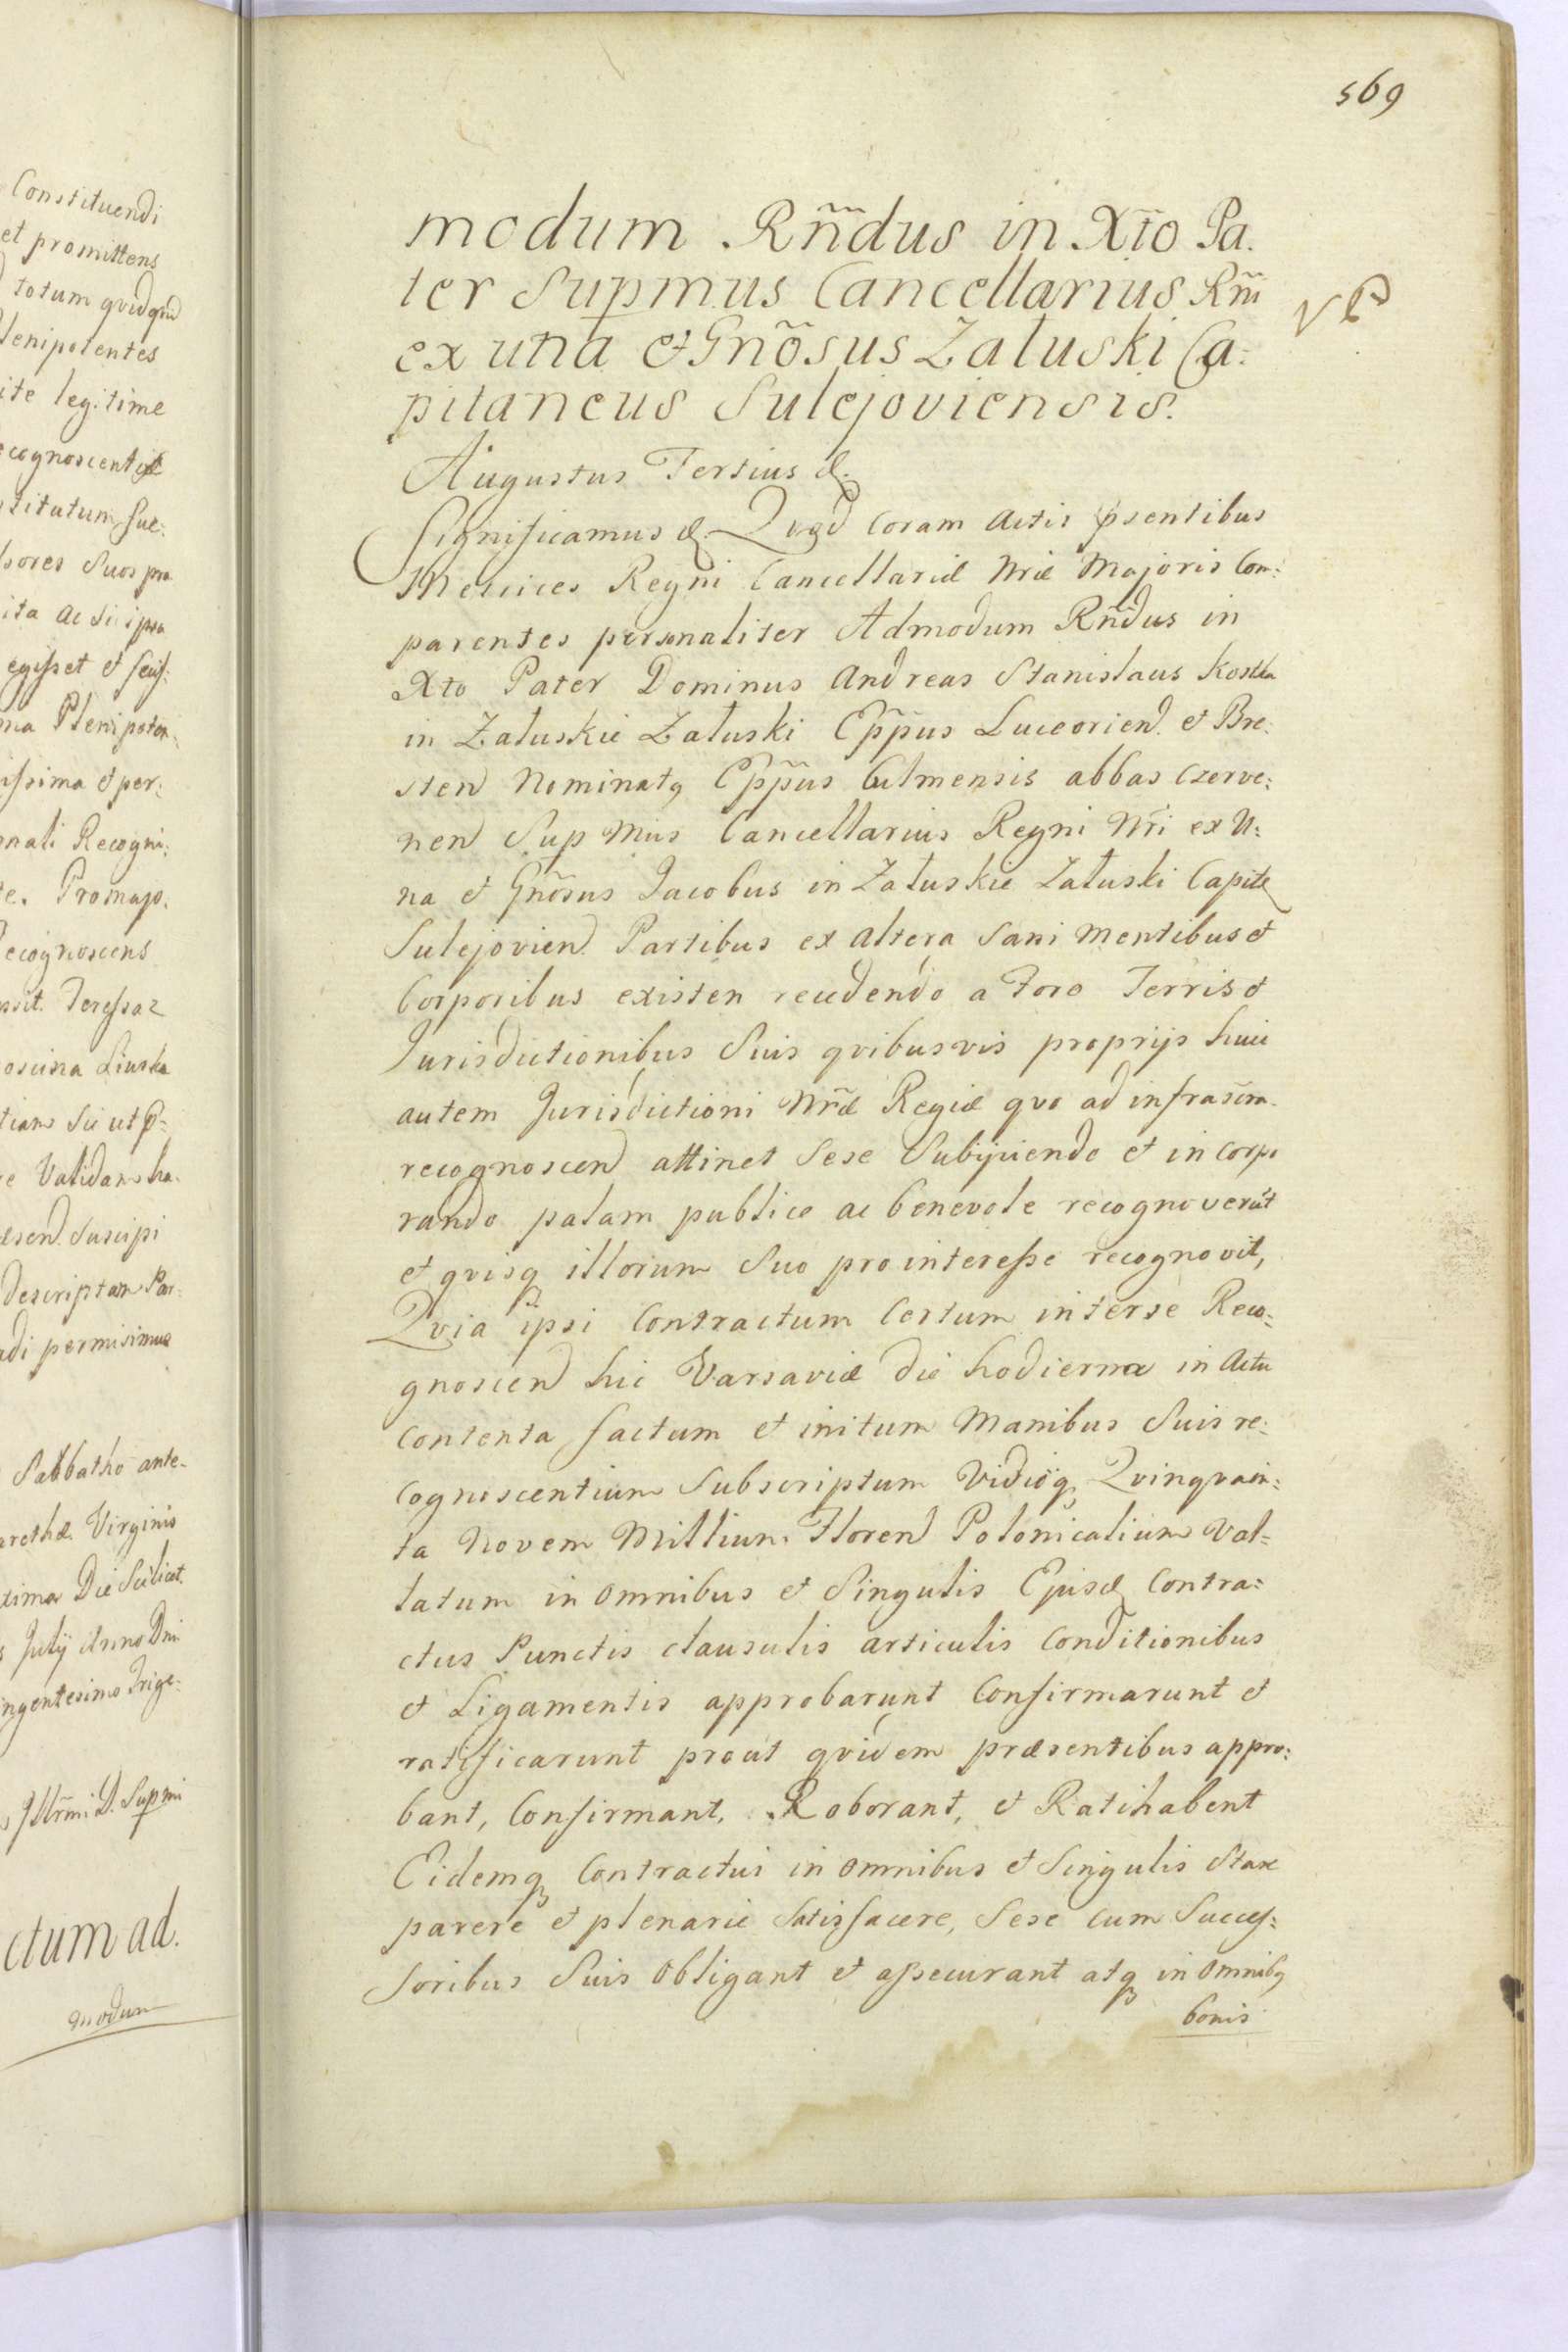 Constituendi
et promittens
totum quidquid
lenipotentes
ite legitime
ecognoscent
titutum suc:
sores Suos pro
ita ac Si ipsa
egisset et fecis:
ma Plenipoten:
issima et per:
onali Recogni:
e. Pro majo.
ecognoscens
ssit. Teressa
oscina Linska
tians sic ut
e Validans ha.
æsend. Suscipi
descriptam Par
di permisimus
Sabbatho ante.
arethæ Virginis
xima Die Scilicet.
July Anno Dni
ingentesimo Trige:
Illrmi D. Supmi
ctum ad.
modum
569
modum Rñdus in Xto Pa.
ter Supmus Cancellarius Rñi
ex una et Gnõsus Załuski Ca:
pitaneus Sulejoviensis.
VP
Augustus Tertius &.
Significamus &. Qvod Coram Actis psentibus
Metrices Regni Cancellariæ Nræ Majoris Com:
parentes personaliter Admodum Rñdus in
Xto Pater Dominus Andreas Stanislaus Kostka
in Załuskie Załuski Eppus Luceorien̄ et Bre:
sten Nominatq Eppus Culmensis abbas Czerve:
nen Sup Mus Cancellarius Regni Nri ex U:
na et Gnõsus Jacobus in Załuskie Załuski Capite
Sulejovien Partibus ex altera Sani Mentibus et
Corporibus existen recedendo a Foro Terris et
Jurisdictionibus Suis qvibusvis proprijs huic
autem Jurisdictioni Nræ Regiæ qvo ad infrascra.
recognoscend attinet Sese Subijciendo et incorpo
rando palam publice ac benevole recognoverūt
et qvisq illorum Suo pro interesse recognovit,
Qvia ipsi Contractum Certum inter se Reco:
gnoscen hic Varsaviæ die hodierna in Actu
Contenta factum et initum Manibus Suis re:
cognoscentium Subscriptum Vidioq Qvinqvain:
ta Novem Millium Floren Polonicalium Val=
latum in omnibus et Singulis Ejusd Contra:
ctus Punctis clausulis articulis Conditionibus
et Ligamentis approbarunt Confirmarunt et
ratificarunt prout qvidem præsentibus appro:
bant, Confirmant, Roborant, et Ratihabent
Eidemq Contractui in omnibus et Singulis Stare
parere et plenarie Satisfacere, Sese cum Succes:
soribus Suis Obligant et assecurant atq in omnibq
bonis